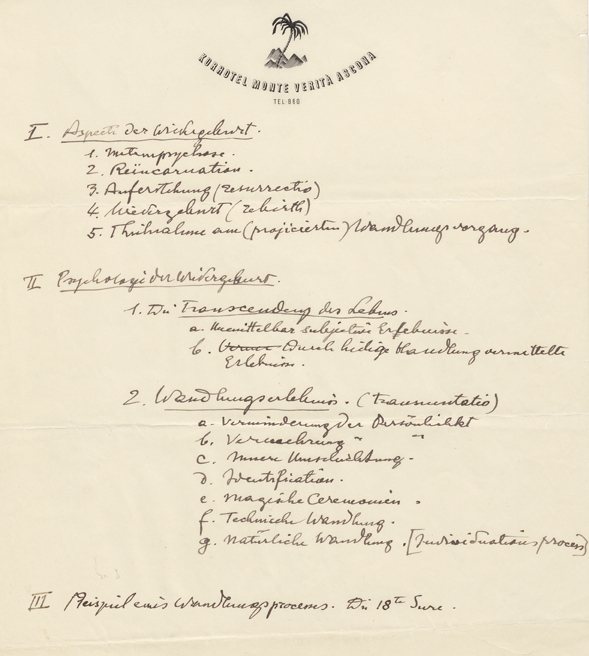 KURHOTEL MONTE VERITÀ ASCONA
TEL·660
I. Aspecte der Wiedergeburt.
1. Metempsychose.
2. Reïncarnation.
3. Auferstehung (resurrectio)
4. Wiedergeburt (rebirth)
5. Theilnahme am (projicierten) Wandlungsvorgang.
II Psychologie der Wiedergeburt.
1. Die Transcendenz des Lebens.
a. Unmittelbar subjective Erlebnisse.
b. Durch heilige Handlung vermittelte
Erlebnisse.
2. Wandlungserlebnis. (transmutatio)
a. Verminderung der Persönlichkt
b. Vermehrung " "
c. Innere Umschichtung.
d. Identification.
e. Magische Ceremonien.
f. Technische Wandlung.
g. Natürliche Wandlung. [Individuationsprocess]
III Beispiel eines Wandlungsprocesses. Die 18te Sure.